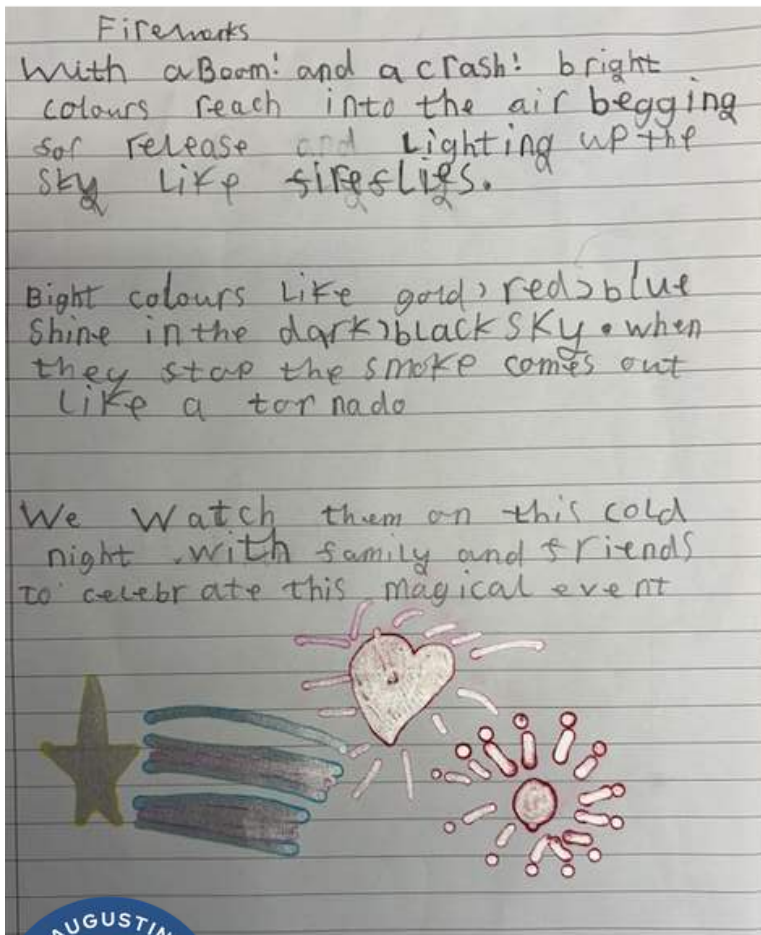 Fireworks
With a Boom! and a crash! bright
colours reach into the air begging
for release and Lighting up the
sky like fireflies.
Bight colours like gold, red, blue
shine in the dark, black sky. when
they stop the smoke comes out
like a tornado
We watch them on this cold
night .with family and friends
to celebrate this magical event
AUGUSTIN